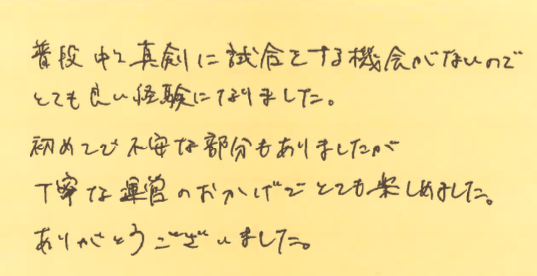 普段中々真剣に試合をする機会がないので
とても良い経験になりました。
初めてで不安な部分もありましたが
丁寧な運営のおかげでとても楽しめました。
ありがとうございました。